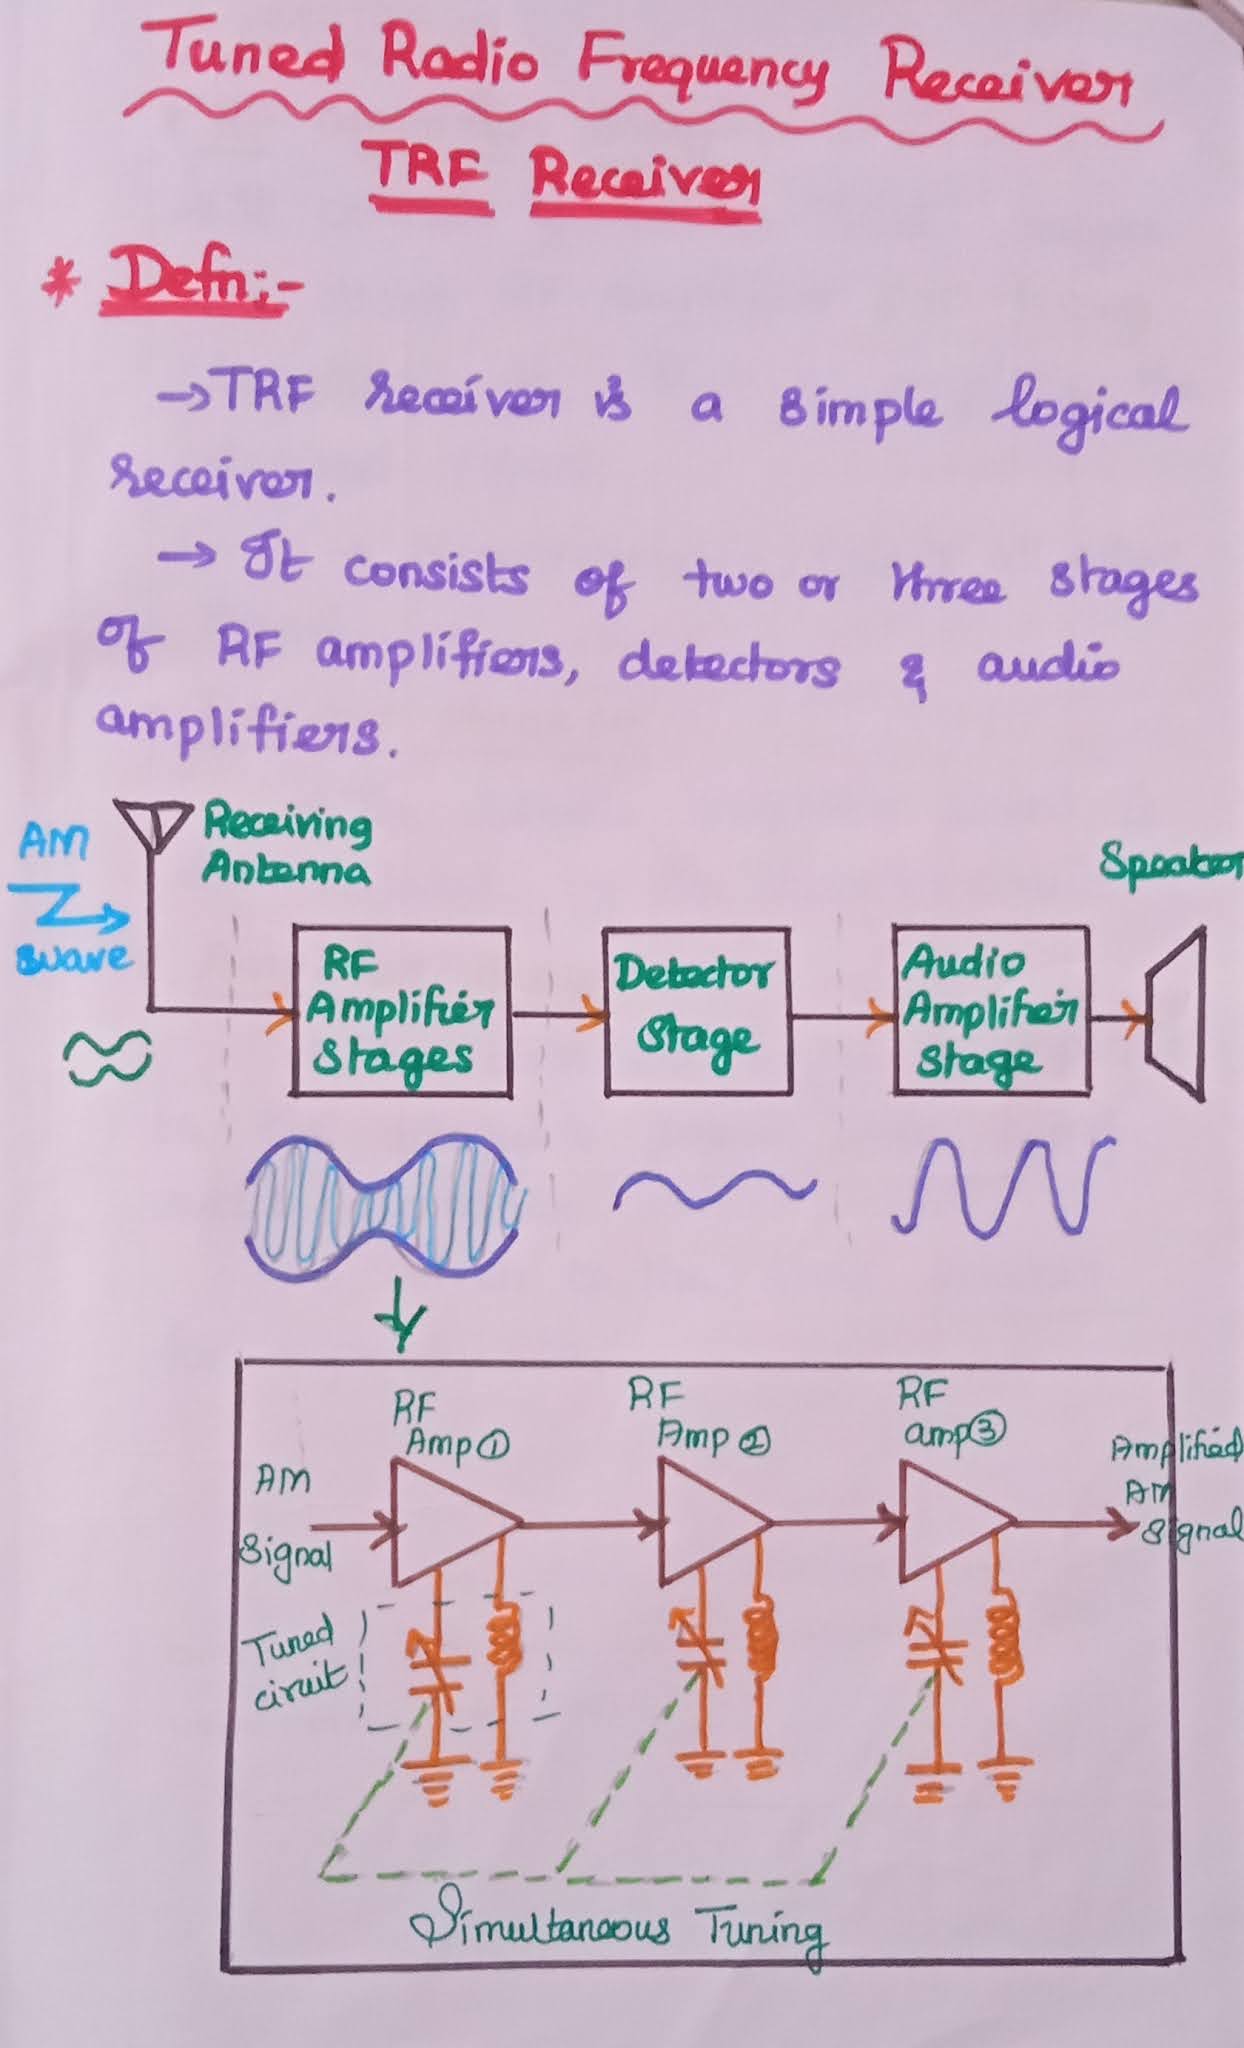 Tuned Radio Frequency Receiver
TRF Receiver
* Defn:-
→TRF receiver is a simple logical
receiver.
→ It consists of two or three stages
of RF amplifiers, detectors & audio
amplifiers.
AM
wave
Receiving
Antenna
Speaker
RF
Amplifier
Stages
Detector
Stage
Audio
Amplifier
Stage
RF
Amp ①
RF
Amp ②
RF
amp ③
AM
Signal
Amplified
AM
Signal
Tuned
ciruit
Simultaneous Tuning